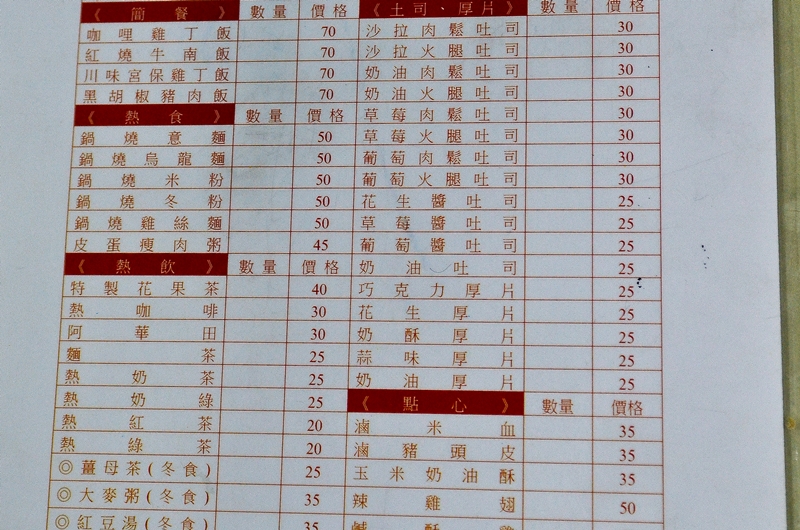 《 簡 餐 》 數 量 價 格
咖哩雞丁飯 70
紅燒牛南飯 70
川味宮保雞丁飯 70
黑胡椒豬肉飯 70
《 熱 食 》 數 量 價 格
鍋燒意麵 50
鍋燒烏龍麵 50
鍋燒米粉 50
鍋燒冬粉 50
鍋燒雞絲麵 50
皮蛋瘦肉粥 45
《 熱 飲 》 數 量 價 格
特製花果茶 40
熱咖啡 30
阿華田 30
麵茶 25
熱奶茶 25
熱奶綠 25
熱紅茶 20
熱綠茶 20
◎薑母茶(冬食) 25
◎大麥粥(冬食) 35
◎紅豆湯(冬食) 35
《 土司、厚片 》 數 量 價 格
沙拉肉鬆吐司 30
沙拉火腿吐司 30
奶油肉鬆吐司 30
奶油火腿吐司 30
草莓肉鬆吐司 30
草莓火腿吐司 30
葡萄肉鬆吐司 30
葡萄火腿吐司 30
花生醬吐司 25
草莓醬吐司 25
葡萄醬吐司 25
奶油吐司 25
巧克力厚片 25
花生厚片 25
奶酥厚片 25
蒜味厚片 25
奶油厚片 25
《 點 心 》 數量 價格
滷米血 35
滷豬頭皮 35
玉米奶油酥 35
辣雞翅 50
鹹酥雞